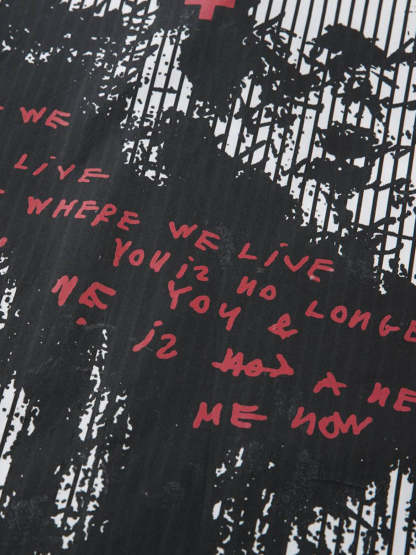 WE
LiVE
WHERE WE LiVE
YOU iZ NO LONGE
YOU &
ME iZ A NE
ME NOW